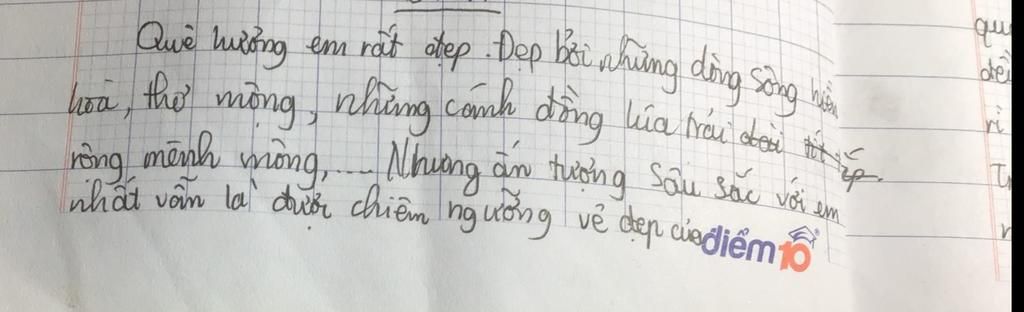 Quê hương em rất đẹp. Đẹp bởi những dòng sông hiền
hoà, thơ mộng, những cánh đồng lúa trải dài tít tắp
rộng mênh mông,.... Nhưng ấn tượng sâu sắc với em
nhất vẫn là được chiêm ngưỡng vẻ đẹp của
điểm10
qu
rì